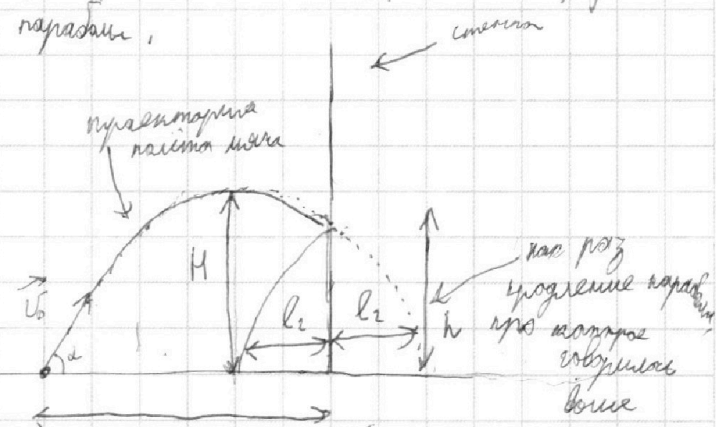 параболы.
стенка
траектория
полёта мяча
H
h
l₂
l₂
v₀
α
как раз
продление параболы,
про которое
говорилось
выше